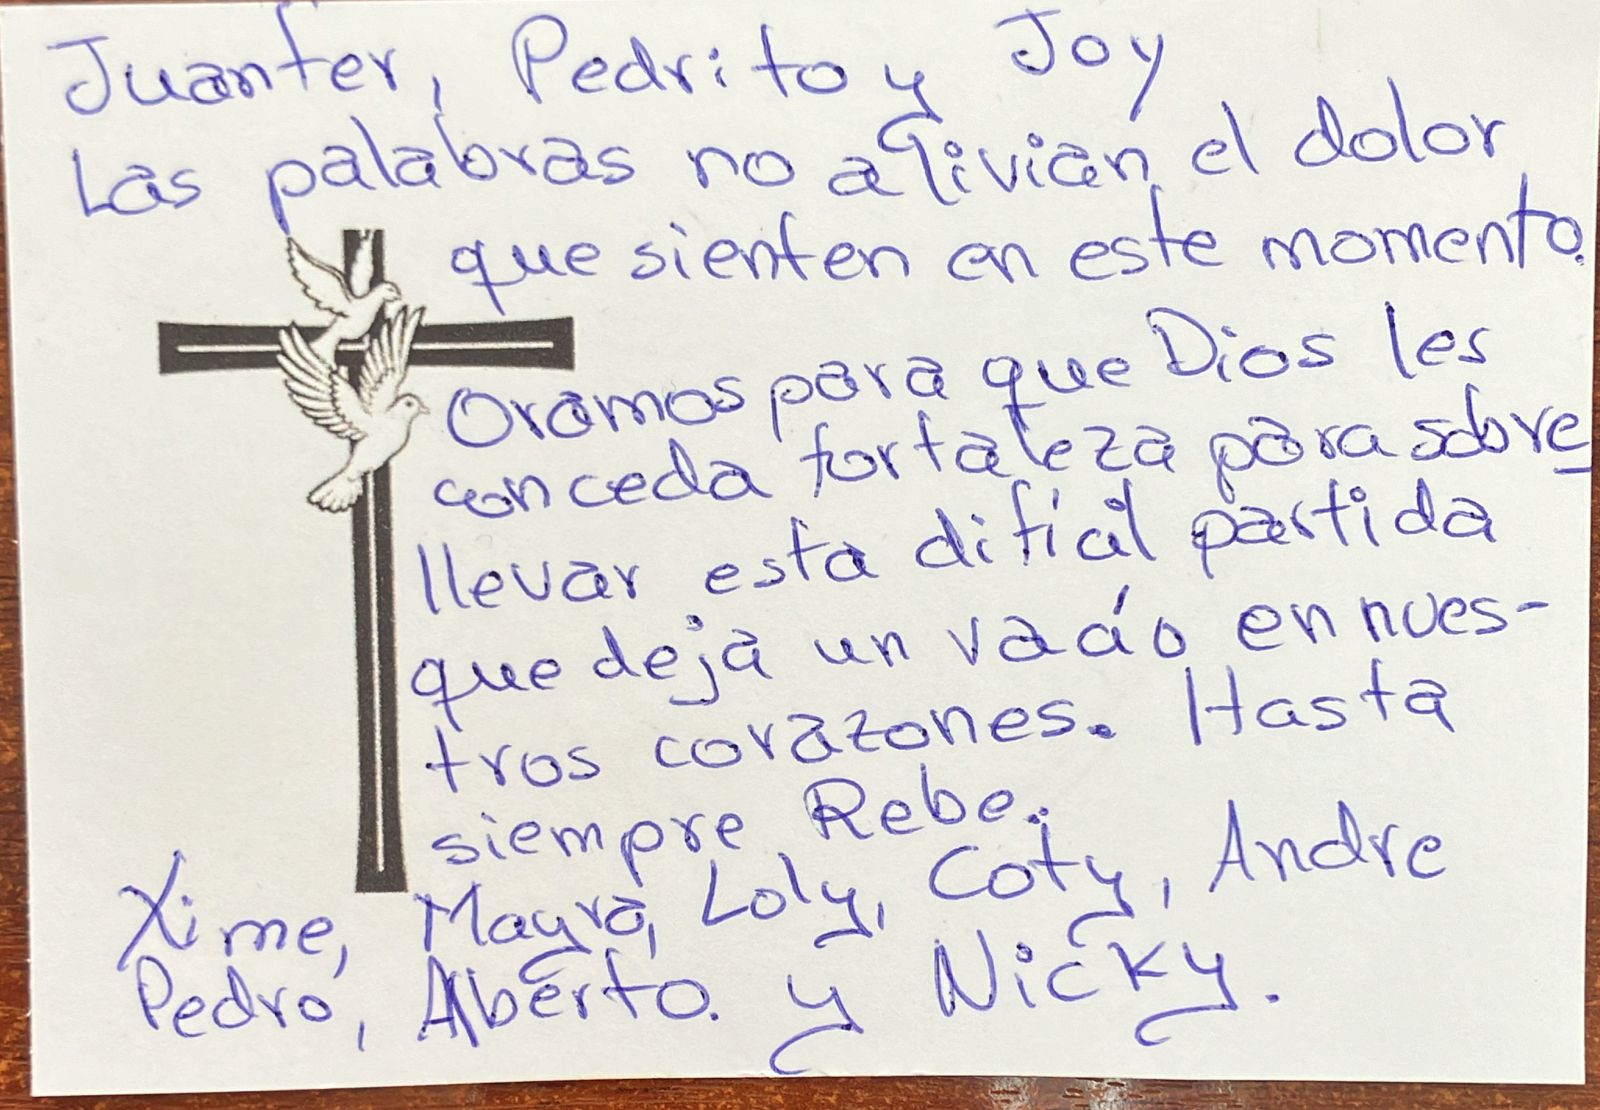 Juanfer, Pedrito y Joy
Las palabras no alivian el dolor
que sienten en este momento.
Oramos para que Dios les
conceda fortaleza para sobre
llevar esta difícil partida
que deja un vacío en nues-
tros corazones. Hasta
siempre Rebe.
Xime, Mayra, Loly, Coty, Andre
Pedro, Alberto. y Nicky.